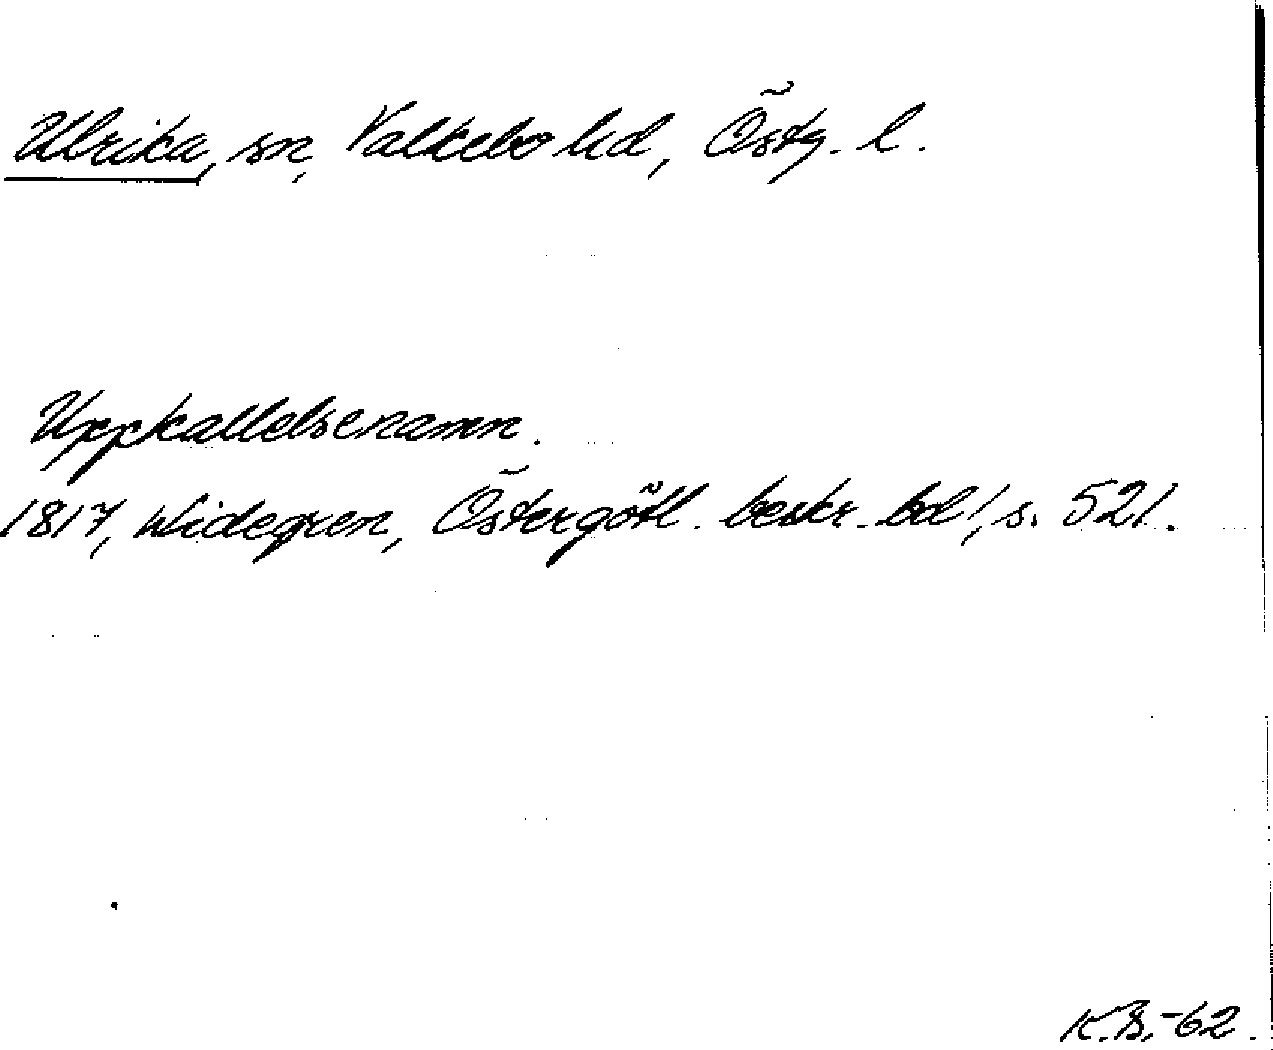 Ulrika, sn, Valkebo hd, Östg. l.
Uppkallelsenamn.
1817, Widegren, Östergötl. beskr. bd 1, s. 521.
K.B.-62.